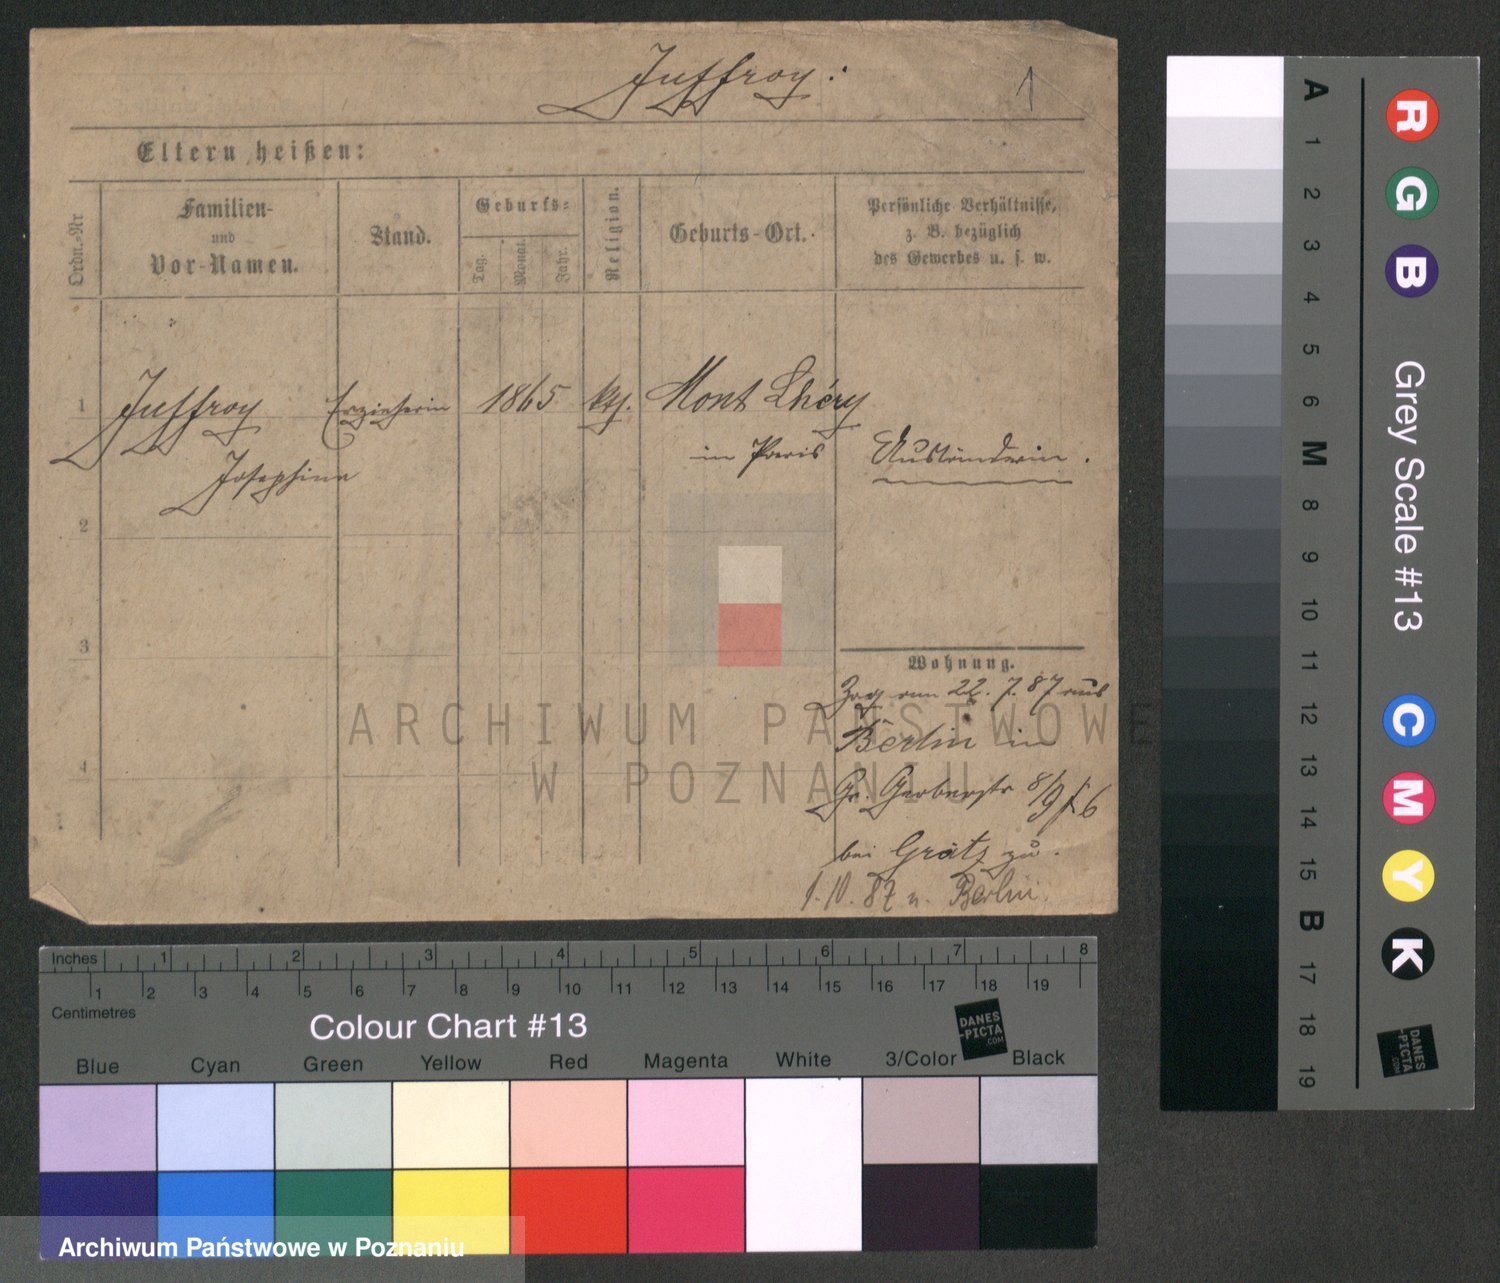 Juffroy. 1
Eltern heißen:
Ordn.-Nr
Familien-
und
Vor-Namen.
Stand.
Geburts-
Tag.
Monat.
Jahr.
Religion.
Geburts-Ort.
Persönliche Verhältnisse,
z. B. bezüglich
des Gewerbes u. s. w.
1 Juffroy Erzieherin 1865 kth. Mont Lhéry
in Paris Ausländerin.
Josephine
2
3
Wohnung.
Zog am 22. 7. 87 aus
Berlin in
4
Gr. Gerberstr 8/9
bei Grätz zu.
1.10.87 n. Berlin
ARCHIWUM PAŃSTWOWE
W POZNANIU
Inches 1 2 3 4 5 6 7 8
1 2 3 4 5 6 7 8 9 10 11 12 13 14 15 16 17 18 19
Centimetres
Colour Chart #13
DANES
-PICTA
.COM
Blue Cyan Green Yellow Red Magenta White 3/Color Black
Archiwum Państwowe w Poznaniu
A 1 2 3 4 5 6 M 8 9 10 11 12 13 14 15 B 17 18 19
R G B Grey Scale #13 C M Y K
DANES
-PICTA
.COM